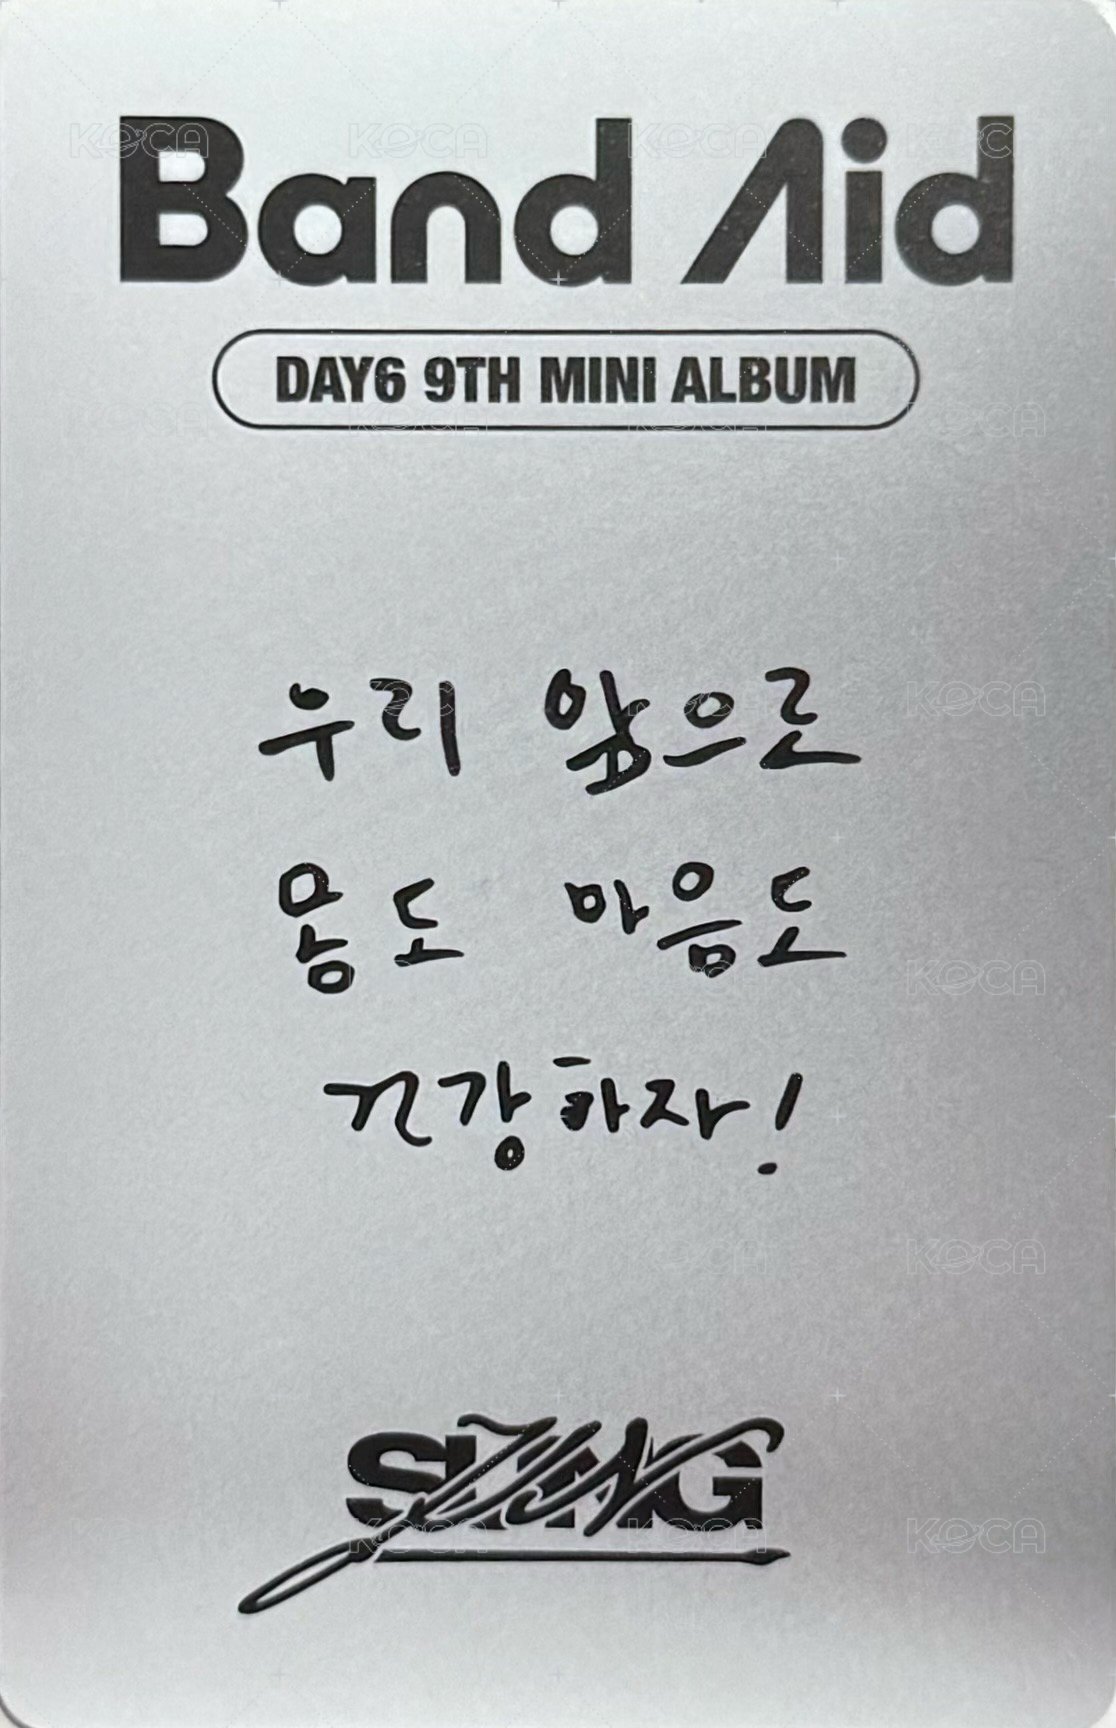 Band Aid
DAY6 9TH MINI ALBUM
우리 앞으로
몸도 마음도
건강하자!
SUNG JIN